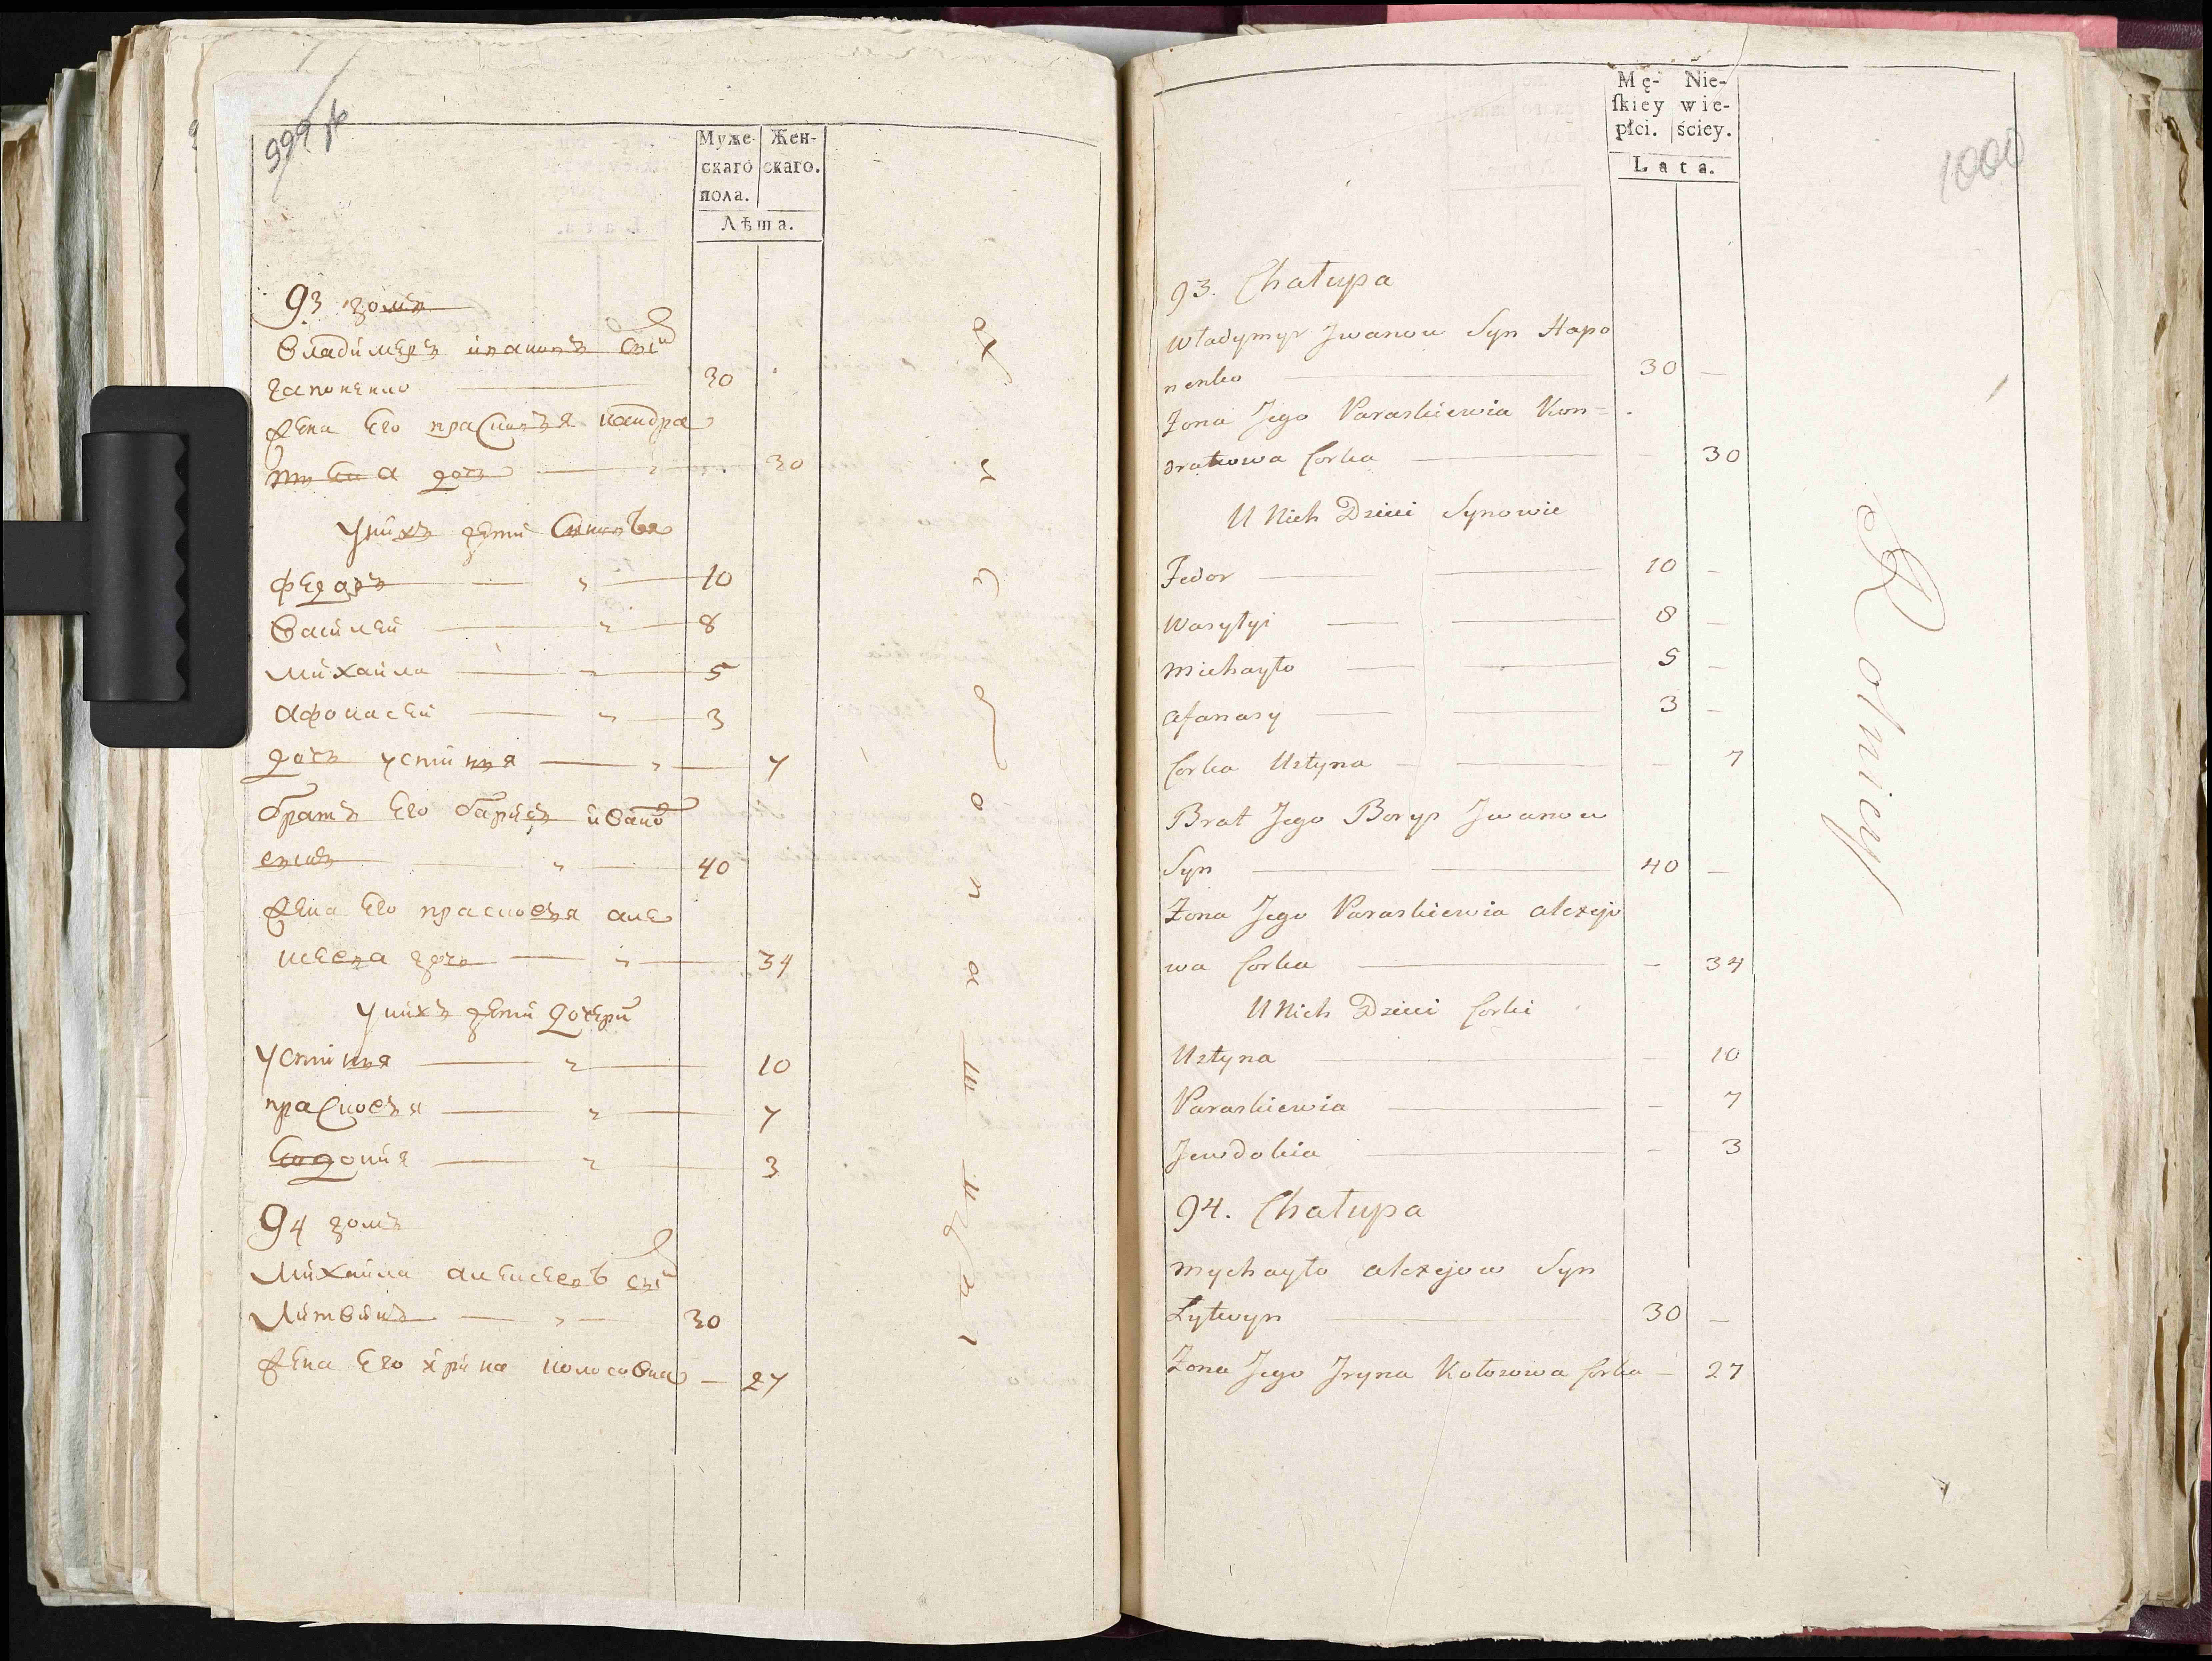 999
Муже- Жен-
скаго скаго.
пола.
Лѣта.
93 домъ
Владимеръ ивановъ сынъ
гапоненко 30
жена Его прасковья кондра
тьева дочь 30
У нихъ дети Сыновья
Федоръ 10
Василей 8
Михаила 5
Афонасей 3
дочь устинья 7
братъ Его борисъ ивановъ
сынъ 40
жена Его прасковья але
ксеева дочь 34
У нихъ дети дочери
Устинья 10
прасковья 7
Евдокия 3
94 домъ
Михаила алексеевъ сынъ
Литвинъ 30
жена Его ирина колосовна — 27
1000
Mę- Nie-
ſkiey wie-
płci. ściey.
Lata.
93. Chałupa
Władymyr Jwanow Syn Hapo
nenko 30 —
Żona Jego Paraskiewia Kon=
dratowa Corka 30
U Nich Dzieci Synowie
Fedor 10 —
Wasylyi 8 —
Michayło 5 —
Afanasy 3 —
Corka Ustyna — 7
Brat Jego Borys Jwanow
Syn 40 —
Żona Jego Paraskiewia Alexejo
wa Corka — 34
U Nich Dzieci Corki
Ustyna — 10
Paraskiewia — 7
Jewdokia — 3
94. Chałupa
Mychayło Alexejow Syn
Łytwyn 30 —
Żona Jego Jryna Kołosowa Corka — 27
Rolnicy